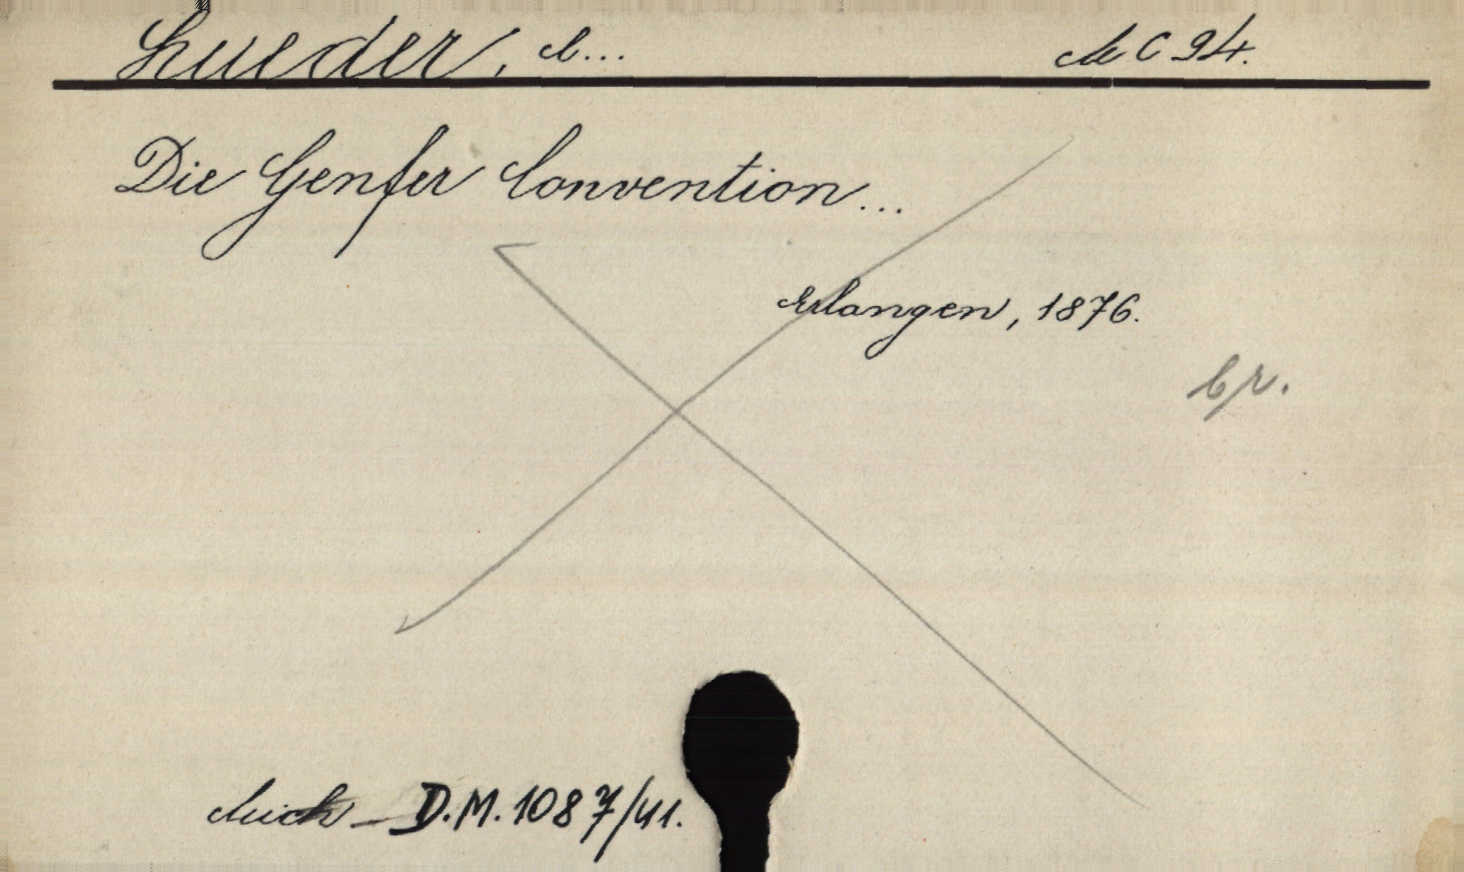 Lueder, C...
Die Genfer Convention...
Erlangen, 1876.
br.
D.M. 1087/41.